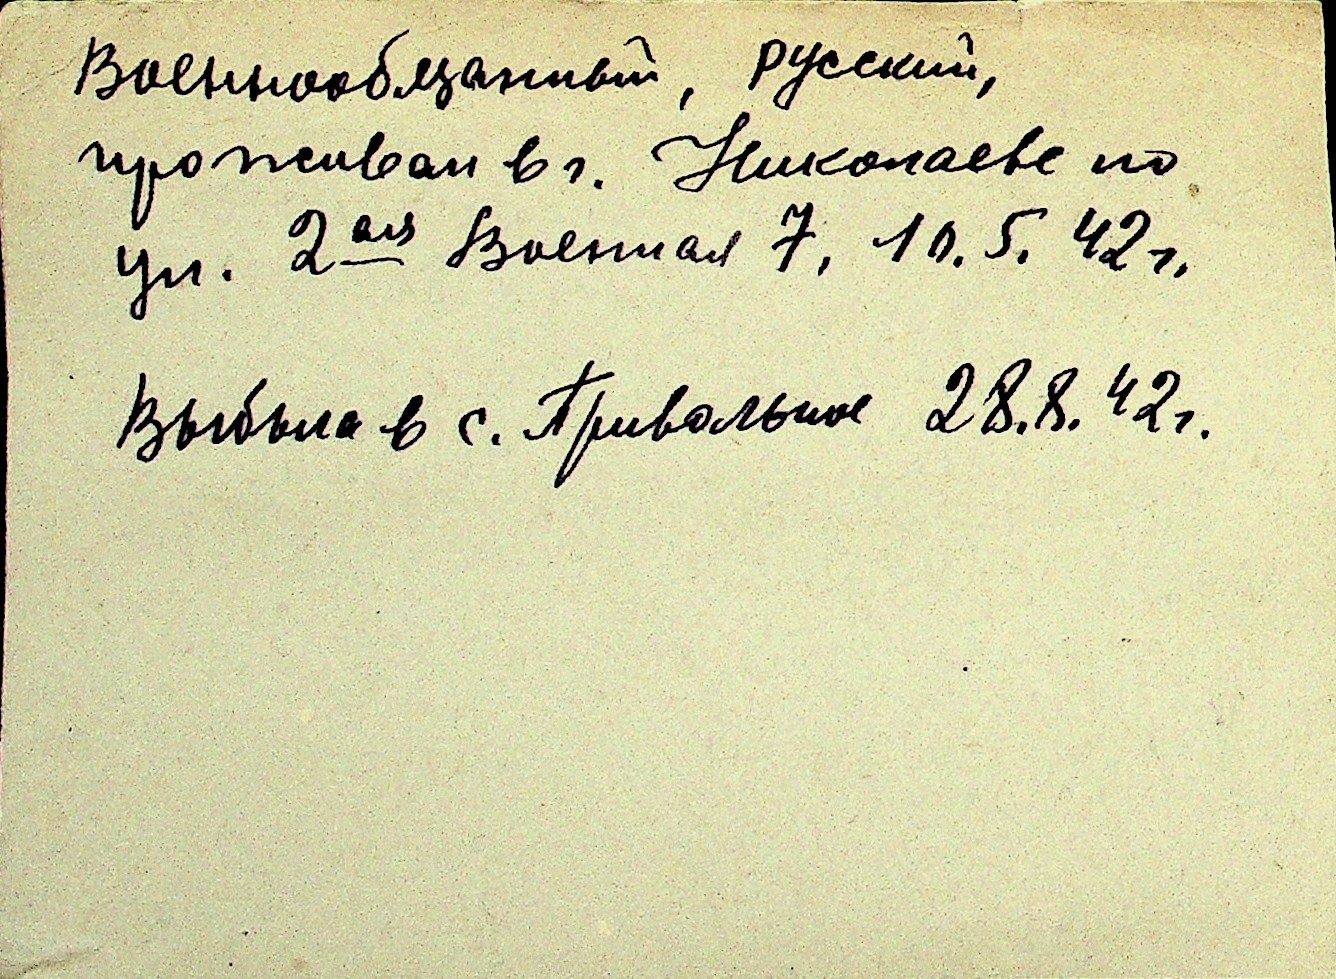 Военнообязанный, русский,
проживал в г. Николаеве по
ул. 2ая Военная 7, 10.5.42г.
Выбыла в с. Привольное 28.8.42г.